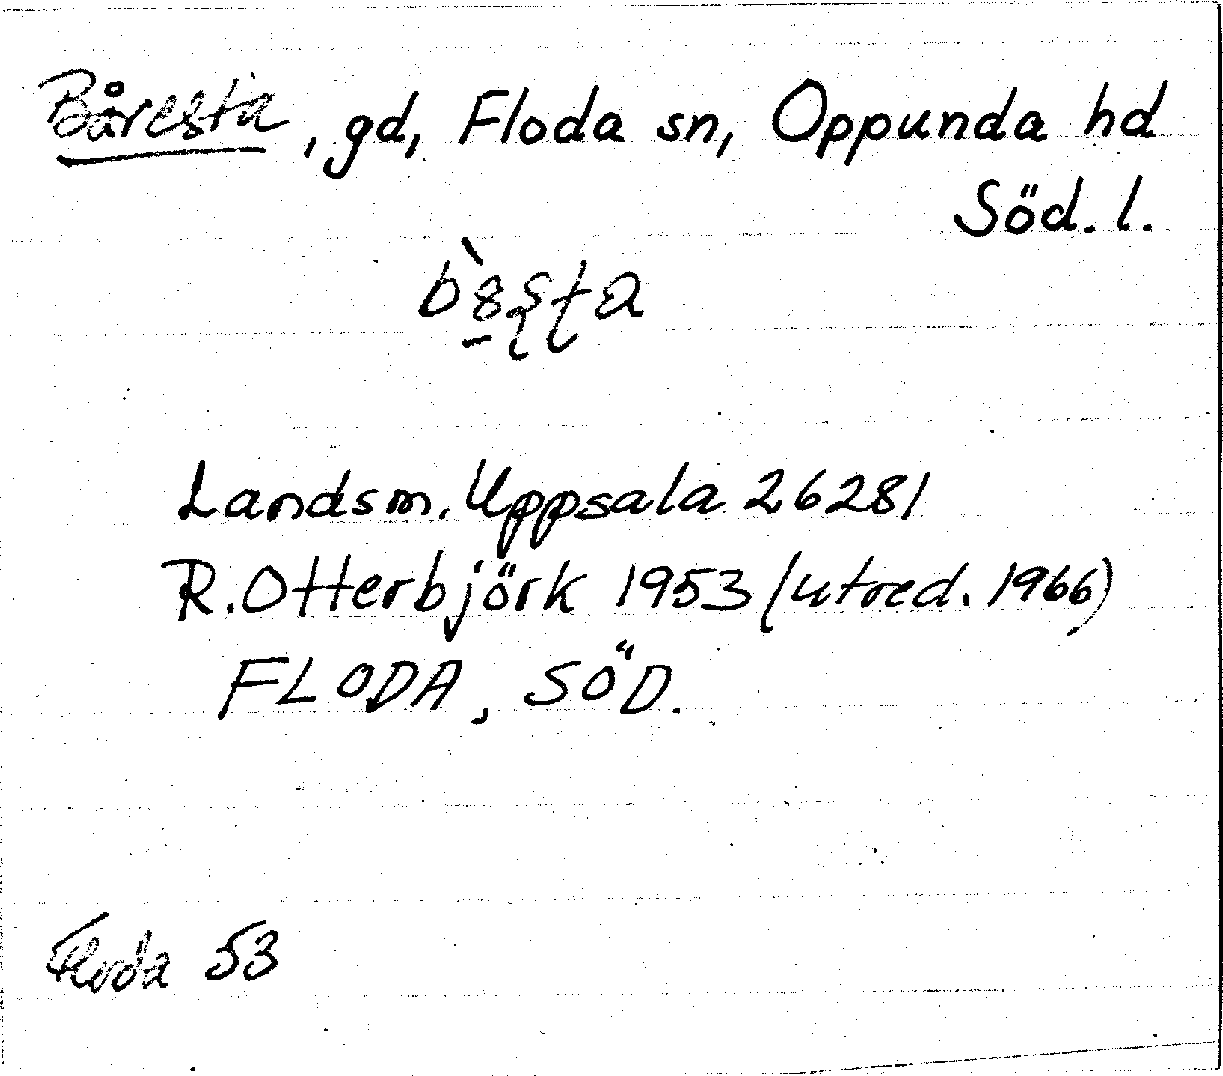 Båresta, gd, Floda sn, Oppunda hd
Söd. l.
Landsm. Uppsala 26281
R. Otterbjörk 1953 (utred. 1966)
FLODA, SÖD.
Floda 53